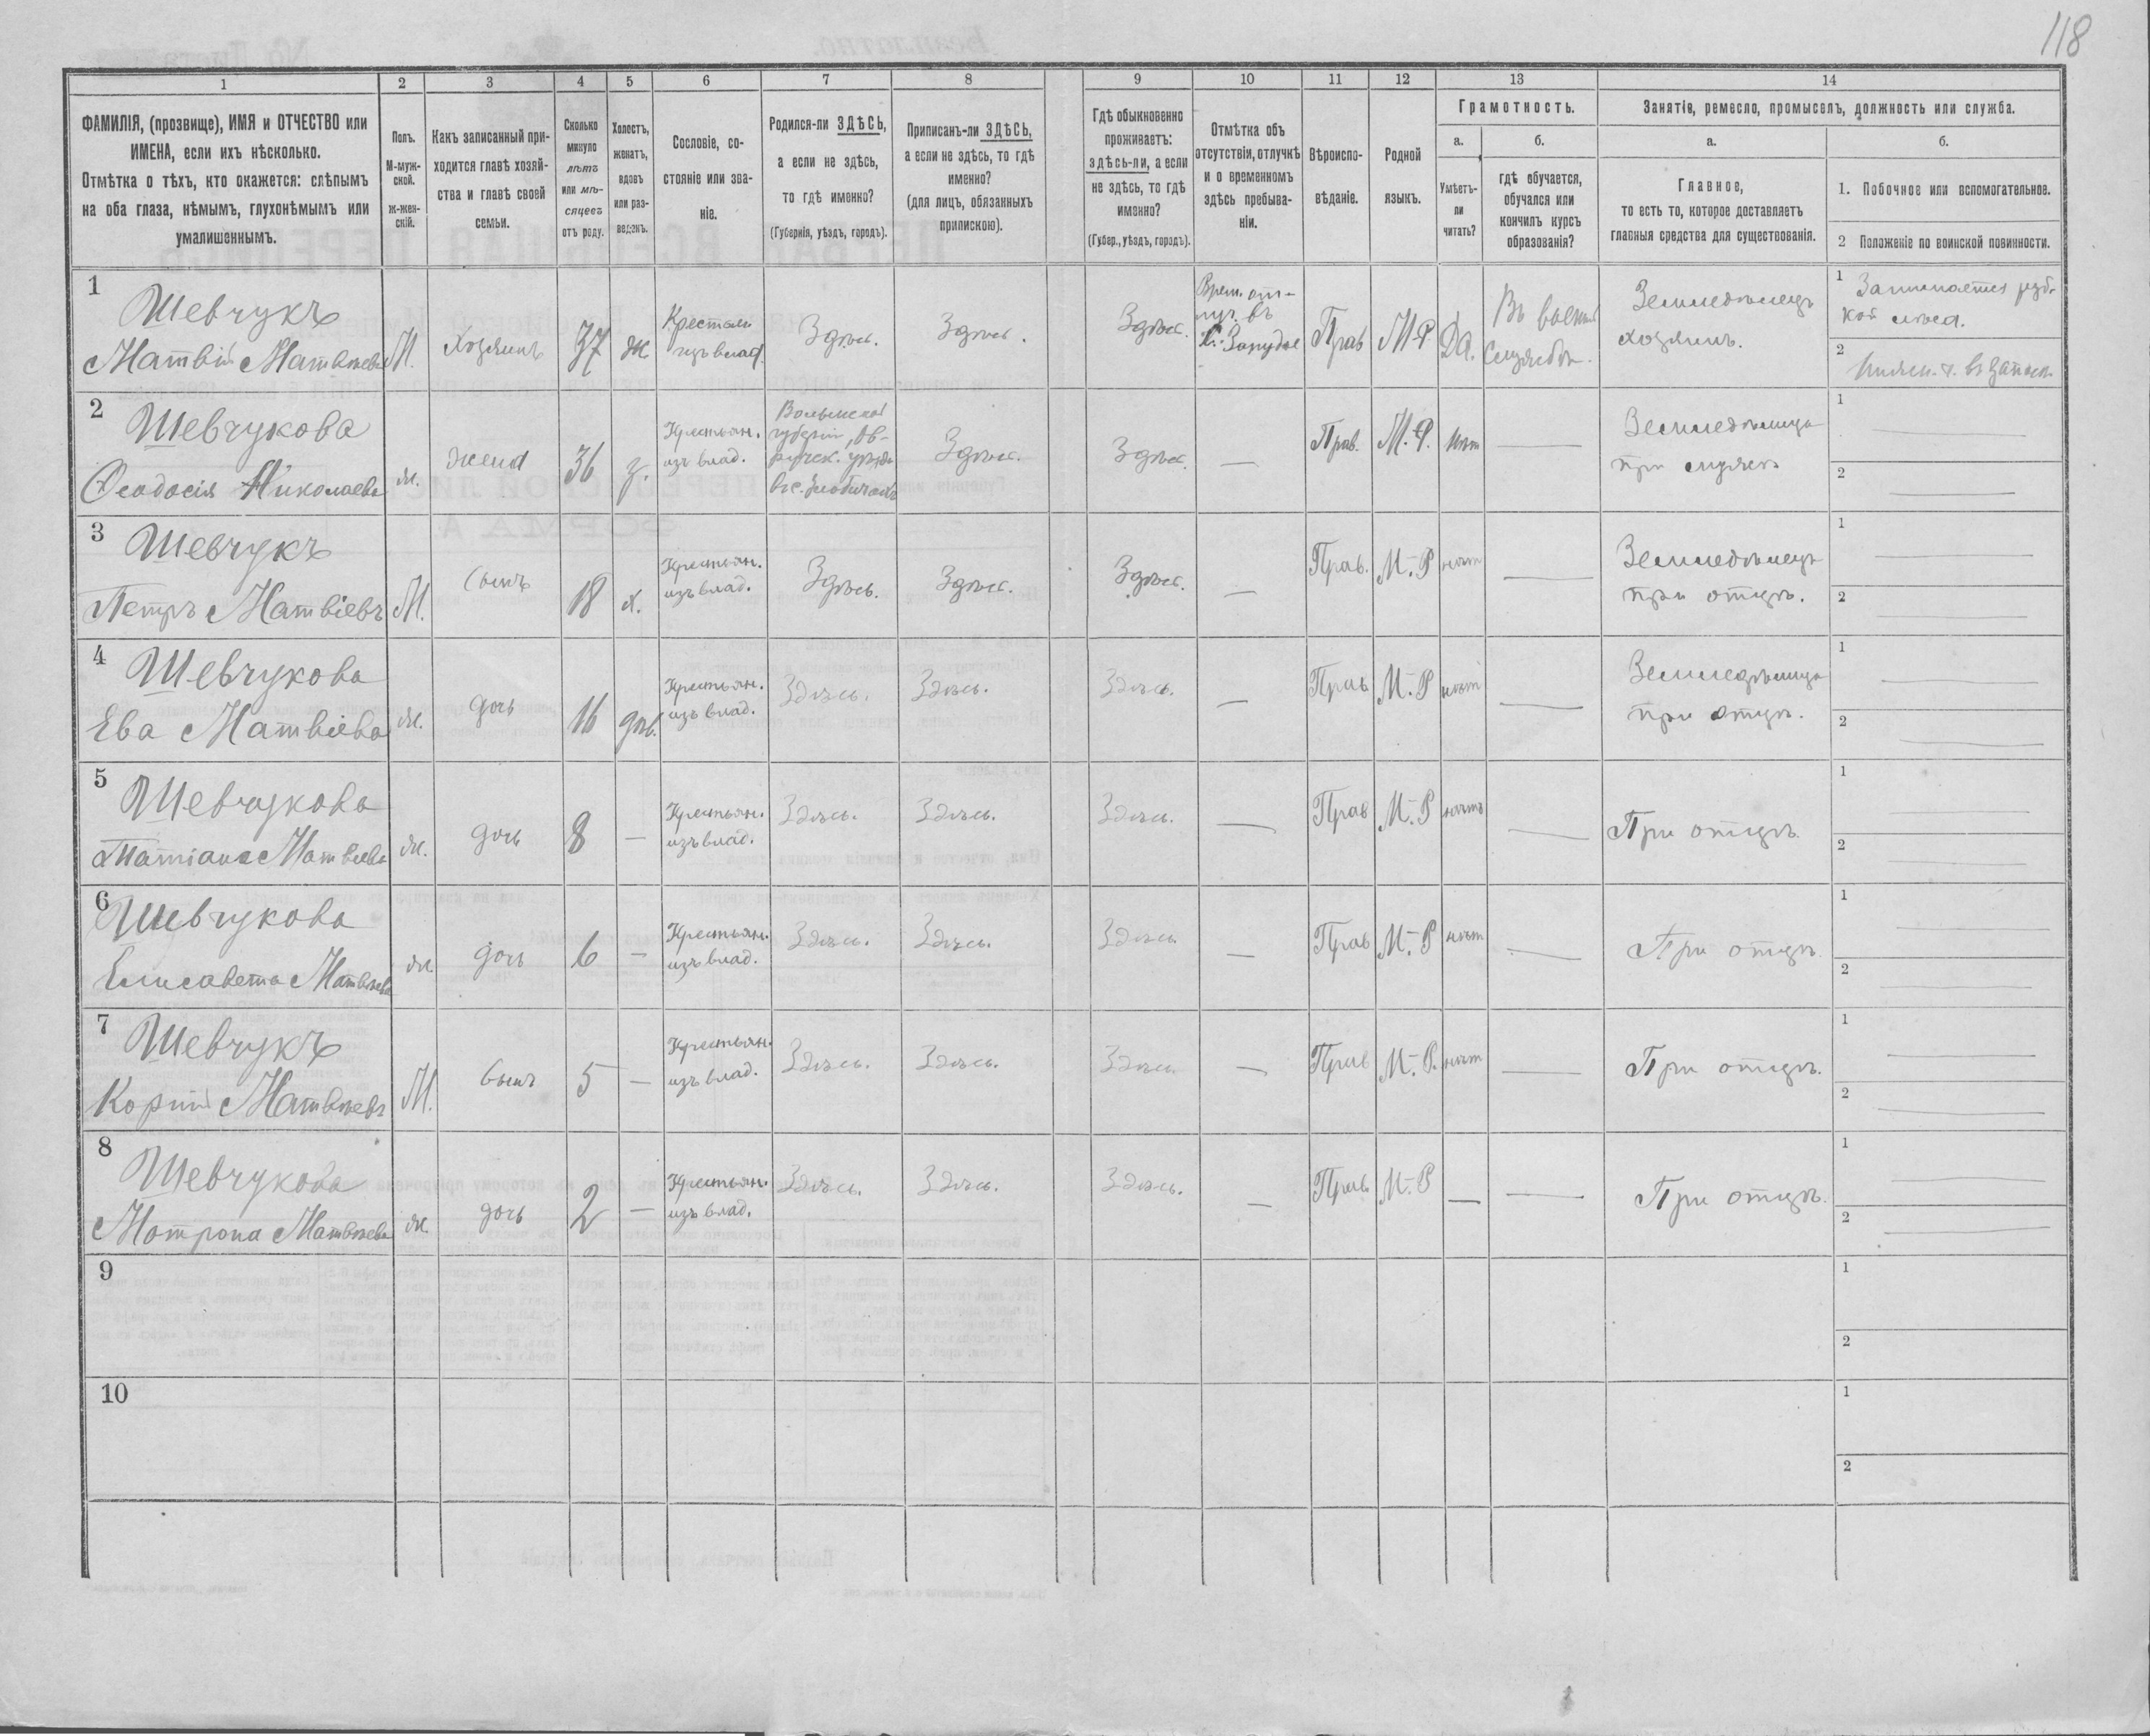 118
1 2 3 4 5 6 7 8 9 10 11 12 13 14
ФАМИЛІЯ, (прозвище), ИМЯ и ОТЧЕСТВО или
ИМЕНА, если ихъ нѣсколько.
Отмѣтка о тѣхъ, кто окажется: слѣпымъ
на оба глаза, нѣмымъ, глухонѣмымъ или
умалишеннымъ.
Полъ.
М-муж-
ской.
Ж-жен-
скій.
Какъ записанный при-
ходится главѣ хозяй-
ства и главѣ своей
семьи.
Сколько
минуло
лѣтъ
или мѣ-
сяцевъ
отъ роду.
Холостъ,
женатъ,
вдовъ
или раз-
веденъ.
Сословіе, со-
стояніе или зва-
ніе.
Родился-ли ЗДѢСЬ,
а если не здѣсь,
то гдѣ именно?
(Губернія, уѣздъ, городъ).
Приписанъ-ли ЗДѢСЬ,
а если не здѣсь, то гдѣ
именно?
(для лицъ, обязанныхъ
припискою).
Гдѣ обыкновенно
проживаетъ:
здѣсь-ли, а если
не здѣсь, то гдѣ
именно?
(Губер., уѣздъ, городъ).
Отмѣтка объ
отсутствіи, отлучкѣ
и о временномъ
здѣсь пребыва-
ніи.
Вѣроиспо-
вѣданіе.
Родной
языкъ.
Грамотность.
а.
Умѣетъ-
ли
читать?
б.
гдѣ обучается,
обучался или
кончилъ курсъ
образованія?
Занятіе, ремесло, промыселъ, должность или служба.
а.
Главное,
то есть то, которое доставляетъ
главныя средства для существованія.
б.
1. Побочное или вспомогательное.
2 Положеніе по воинской повинности.
1
Шевчукъ
Матвій Матвѣевъ
М.
Хозяинъ
37
ж
изъ влад.
Здѣсь.
Здѣсь.
Здѣсь.
Врем. от-
луч. въ
Прав
М-Р
Да.
Въ воен
службѣ.
Земледѣлецъ
хозяинъ.
1 Занимается руб-
кой лѣса.
2
2
Шевчукова
Ѳеодосія Николаева
ж.
жена
36
з.
Крестьян.
изъ влад.
Волынской
губерніи, Ов-
руч. уѣзда
Здѣсь.
Здѣсь.
—
Прав.
М.-Р.
нѣт
—
Земледѣлица
при мужѣ
1
2
3
Шевчукъ
Петръ Матвіевъ
М.
Сынъ
18
х.
Крестьян.
изъ влад.
Здѣсь.
Здѣсь.
Здѣсь.
—
Прав.
М.-Р
нѣт
—
Земледѣлецъ
при отцѣ.
1
2
4
Шевчукова
Ева Матвіева
ж.
дочь
16
дѣв.
Крестьян.
изъ влад.
Здѣсь.
Здѣсь.
Здѣсь.
—
Прав
М.-Р
нѣт
—
Земледѣлица
при отцѣ.
1
2
5
Шевчукова
Татіана Матвіева
ж.
дочь
8
—
Крестьян.
изъ влад.
Здѣсь.
Здѣсь.
Здѣсь.
—
Прав
М.-Р
нѣтъ
—
При отцѣ.
1
2
6
Шевчукова
Елисавета Матвѣева
ж.
дочь
6
—
Крестьян.
изъ влад.
Здѣсь.
Здѣсь.
Здѣсь
—
Прав
М.-Р
нѣт
—
При отцѣ.
1
2
7
Шевчукъ
Матвѣевъ
М.
Сынъ
5
—
Крестьян.
изъ влад.
Здѣсь.
Здѣсь.
Здѣсь.
—
Прав
М.-Р.
нѣт
—
При отцѣ.
1
2
8
Шевчукова
Матрона Матвѣева
ж.
дочь
2
—
Крестьян.
изъ влад.
Здѣсь.
Здѣсь.
Здѣсь.
—
Прав.
М.-Р
—
—
При отцѣ.
1
2
9
1
2
10
1
2